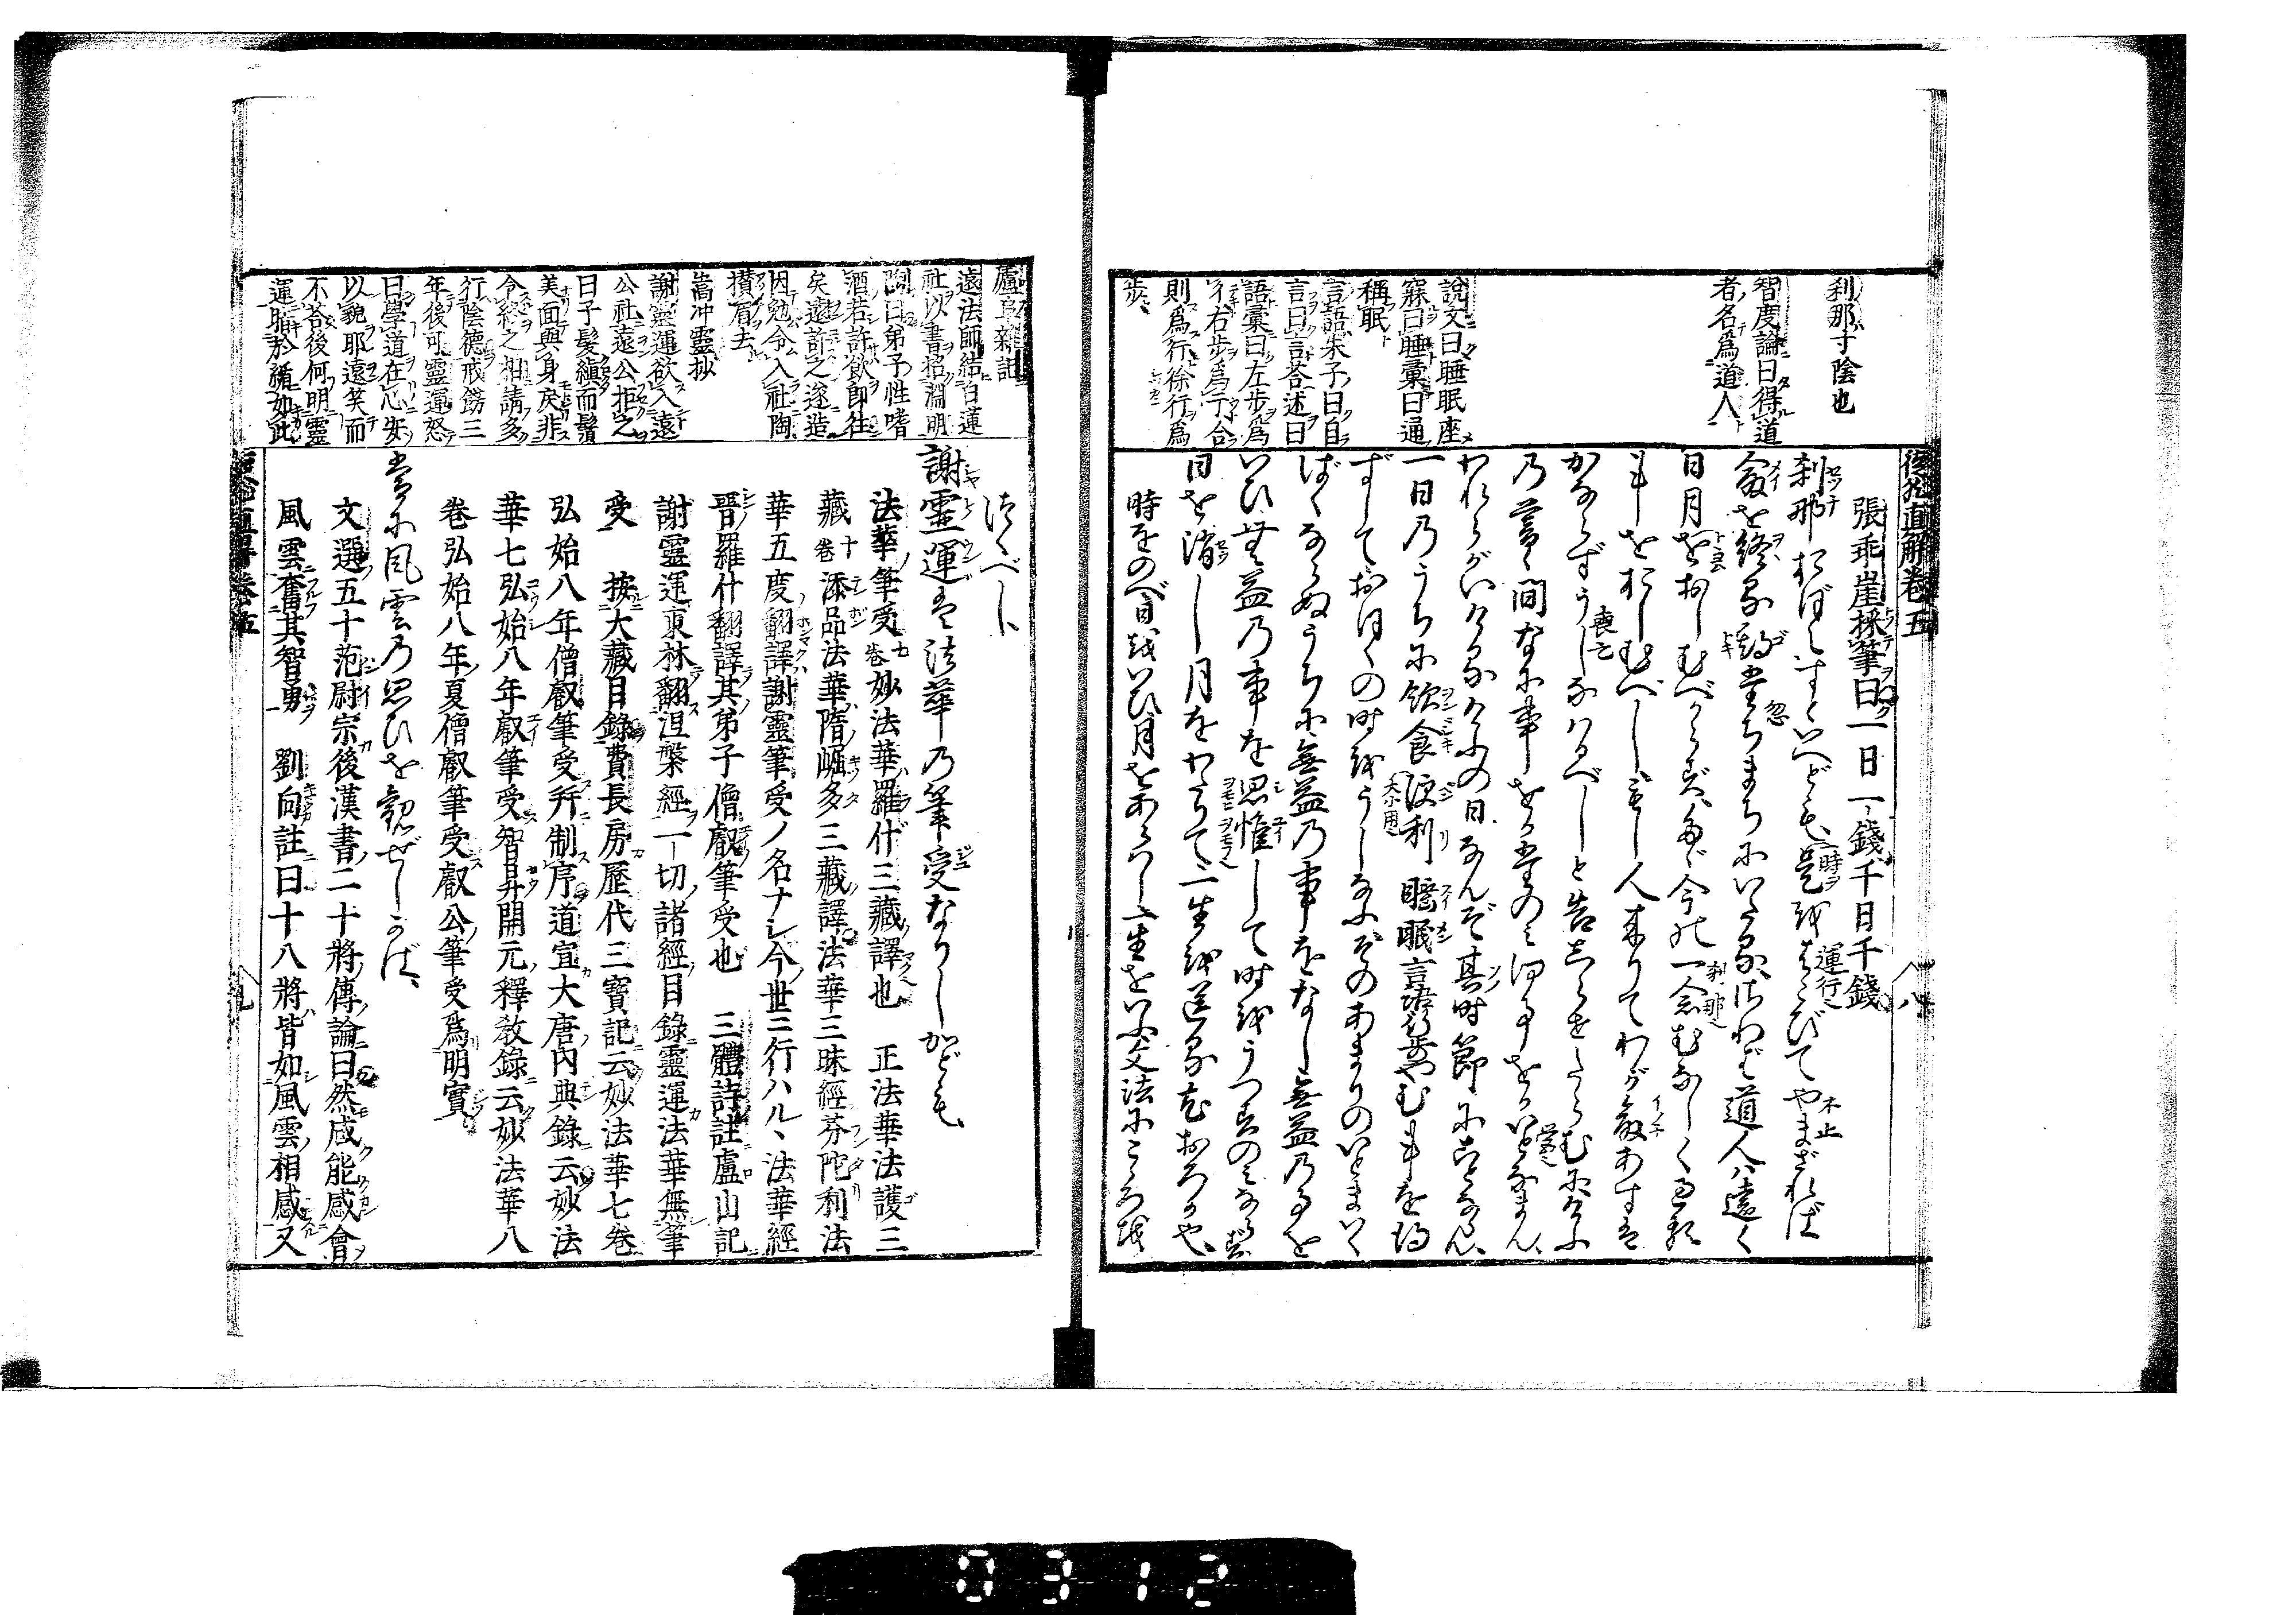 徒然直解卷五
八
刹那寸陰也
智度論曰得道
者名爲道人
說文曰睡眠座
寐曰睡彙曰通
稱眠
言語朱子曰自
言曰言荅述曰
語彙曰左步爲
彳右步爲亍合
則爲行徐行爲
步
張乖崖採筆曰一日一錢千日千錢
刹那おぼえずといへども是をはこびてやまざれば
命を終る期たちまちにいたるされば道人は遠く
日月をおしむべからずただ今の一念むなしく過る
事をおしむべしもし人來りてわが命あすは
かならずうしなはるべしと告しらせたらむにけふ
の暮るゝ間なに事をかたのみ何事をかいとなまん
われらがいけるけふの日なんぞ其時節にことならん
一日のうちに飲食便利睡眠言語行歩やむ事を得
ずしておほくの時をうしなふそのあまりのいとまいく
ばくならぬうちに無益の事をなし無益の事を
いひ無益の事を思惟して時をうつすのみならず
日を消し月をわたりて一生を送る尤おろかや
時をのべ日をいひ月をあらはし一生をいふ文法にこゝろを
盧阜雜記
遠法師結白蓮
社以書招淵明
陶曰弟子性嗜
酒若許飲即往
矣遠許之遂造
因勉令入社陶
攅眉去
嵩冲靈抄
謝靈運欲入遠
公社遠公拒之
曰子髪纈而鬚
美面與身戾非
令終之相請多
行陰德戒飭三
年後可靈運怒
曰學道在心安
以貌耶遠笑而
不荅後何明靈
運
如此
つくべし
謝靈運は法華の筆受なりしかども
法華筆受七卷妙法華羅什三藏譯也　正法華法護三
藏十卷添品法華隋崛多三藏譯法華三昧經芬陀利法
華五度翻譯謝靈筆受ノ名ナシ今世ニ行ハル丶法華經
晉羅什翻譯其弟子僧叡筆受也　三體詩註盧山記
謝靈運東林翻涅槃經一切諸經目錄靈運法華無筆
受　按大藏目錄費長房歷代三寶記云妙法華七卷
弘始八年僧叡筆受幷制序道宣大唐內典錄云妙法
華七弘始八年叡筆受智昇開元釋教錄云妙法華八
卷弘始八年夏僧叡筆受叡公筆受爲明實
常に風雲の思ひを觀ぜしかば
文選五十范尉宗後漢書二十將傳論曰然咸能感會
風雲奮其智勇　劉向註曰十八將皆如風雲相感又
九
0312